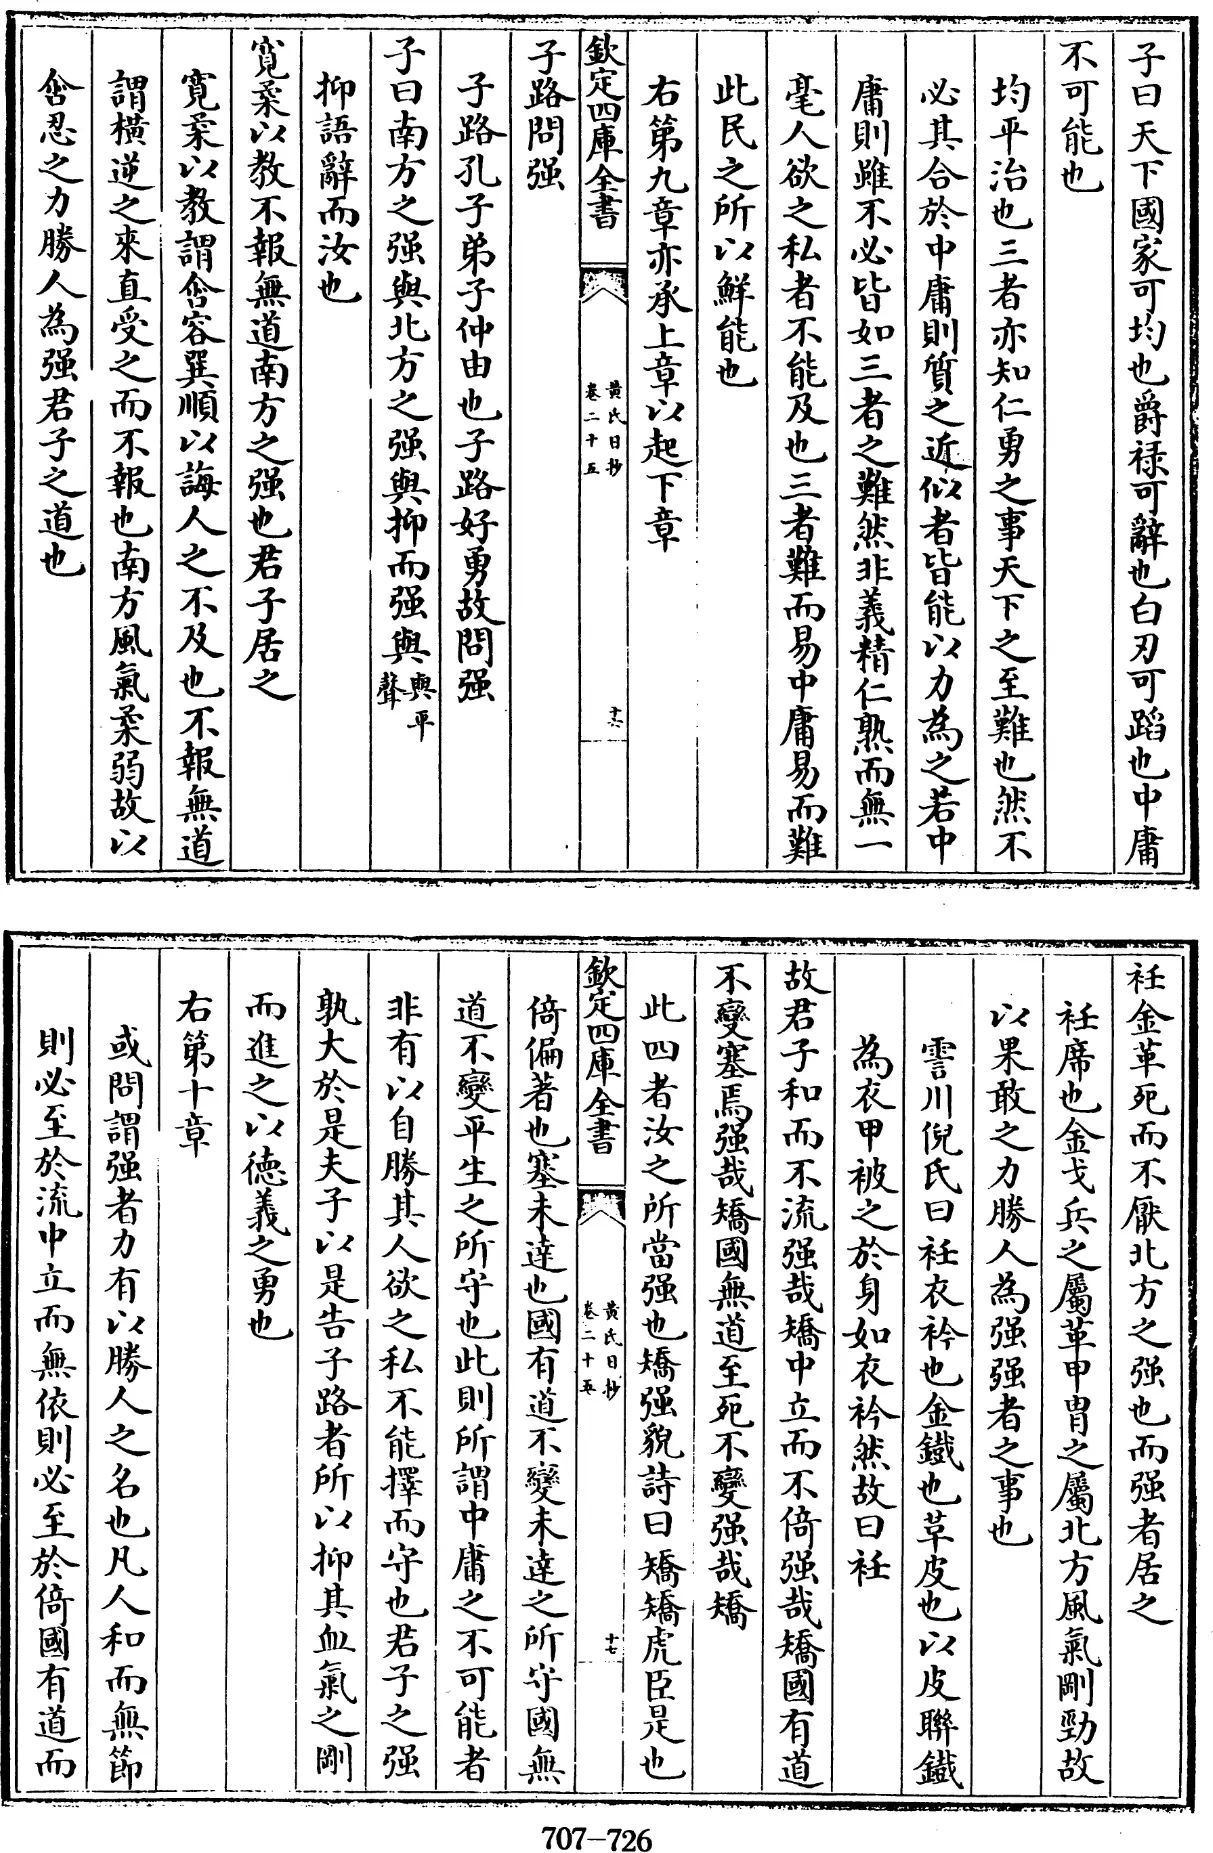 子曰天下國家可均也爵禄可辭也白刃可蹈也中庸
不可能也
均平治也三者亦知仁勇之事天下之至難也然不
必其合於中庸則質之近似者皆能以力為之若中
庸則雖不必皆如三者之難然非義精仁熟而無一
毫人欲之私者不能及也三者難而易中庸易而難
此民之所以鮮能也
右第九章亦承上章以起下章
欽定四庫全書
黄氏日抄
卷二十五
十六
子路問强
子路孔子弟子仲由也子路好勇故問强
子曰南方之强與北方之强與抑而强與與平聲
抑語辭而汝也
寛柔以教不報無道南方之强也君子居之
寛柔以教謂含容巽順以誨人之不及也不報無道
謂橫逆之來直受之而不報也南方風氣柔弱故以
含忍之力勝人為强君子之道也
衽金革死而不厭北方之强也而强者居之
衽席也金戈兵之屬革甲胄之屬北方風氣剛勁故
以果敢之力勝人為强强者之事也
霅川倪氏曰衽衣衿也金鐵也革皮也以皮聯鐵
為衣甲被之於身如衣衿然故曰衽
故君子和而不流强哉矯中立而不倚强哉矯國有道
不變塞焉强哉矯國無道至死不變强哉矯
此四者汝之所當强也矯强貌詩曰矯矯虎臣是也
欽定四庫全書
黄氏日抄
卷二十五
十七
倚偏著也塞未達也國有道不變未達之所守國無
道不變平生之所守也此則所謂中庸之不可能者
非有以自勝其人欲之私不能擇而守也君子之强
孰大於是夫子以是告子路者所以抑其血氣之剛
而進之以徳義之勇也
右第十章
或問謂强者力有以勝人之名也凡人和而無節
則必至於流中立而無依則必至於倚國有道而
707-726